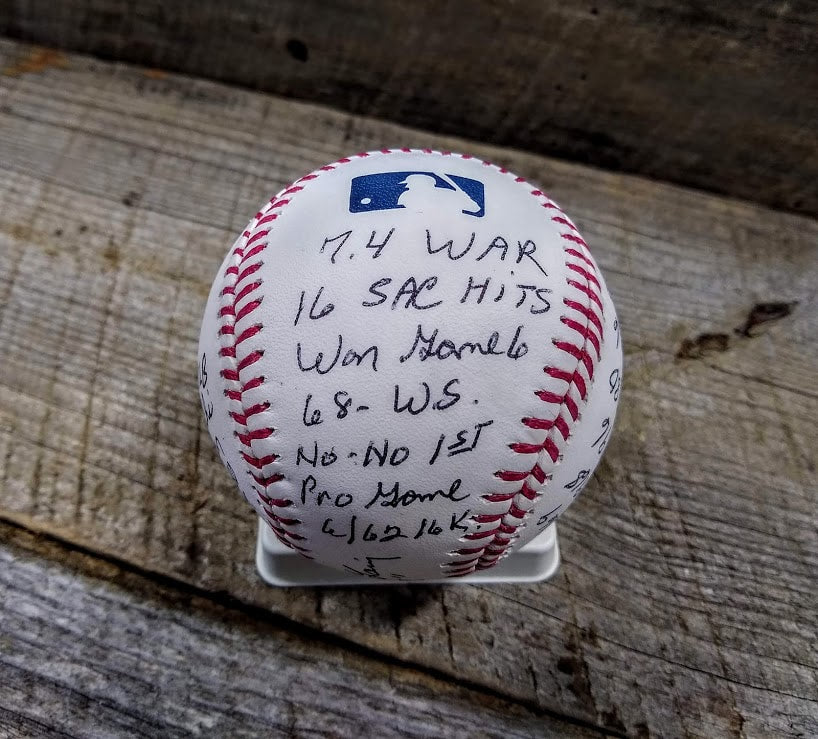 7.4 WAR
16 SAC HITS
Won Game 6
68- WS.
No-No 1ST
Pro Game
6/62 16K.